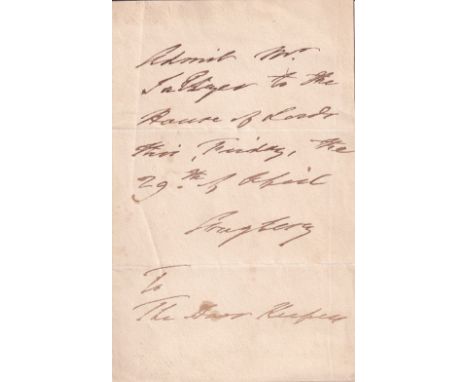 Admit Mr.
to the
House of Lords
this, Friday, the
29th of April
To
The Door Keeper